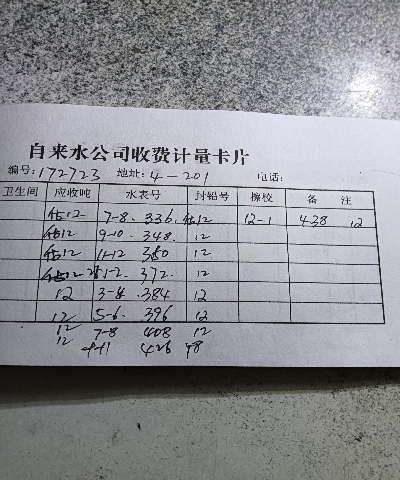 自来水公司收费计量卡片
编号:172723 地址:4-201 电话:
卫生间 应收吨 水表号 封铅号 检校 备 注
估12 7-8. 336. 估12 12-1 438 12
估12 9-10. 348. 12
估12 11-12 360 12
1-2. 372. 12
12 3-4 .384 12
12 5-6. 396 12
12 7-8 408 12
12 426